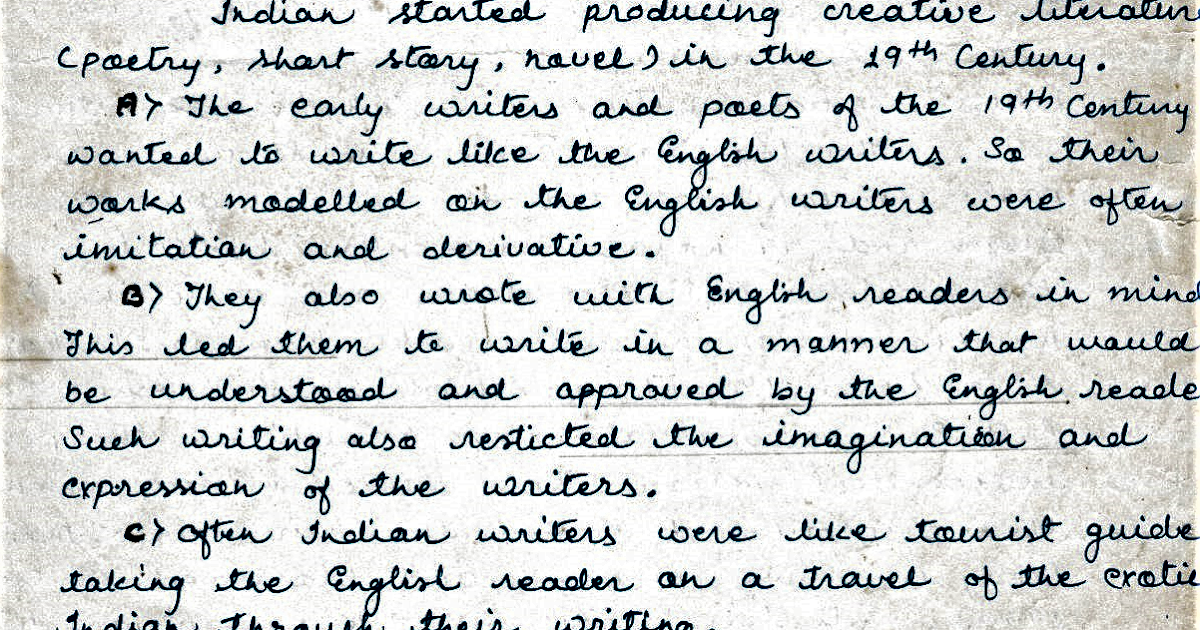 Indian started producing creative literatur
(poetry, short story, novel) in the 19th Century.
A> The early writers and poets of the 19th Century
wanted to write like the English writers. So their
works modelled on the English writers were often
imitation and derivative.
B> They also wrote with English readers in mind
This led them to write in a manner that would
be understood and approved by the English reade
Such writing also resticted the imagination and
expression of the writers.
C> Often Indian writers were like tourist guide
taking the English reader on a travel of the exotic
Indian through their writing.